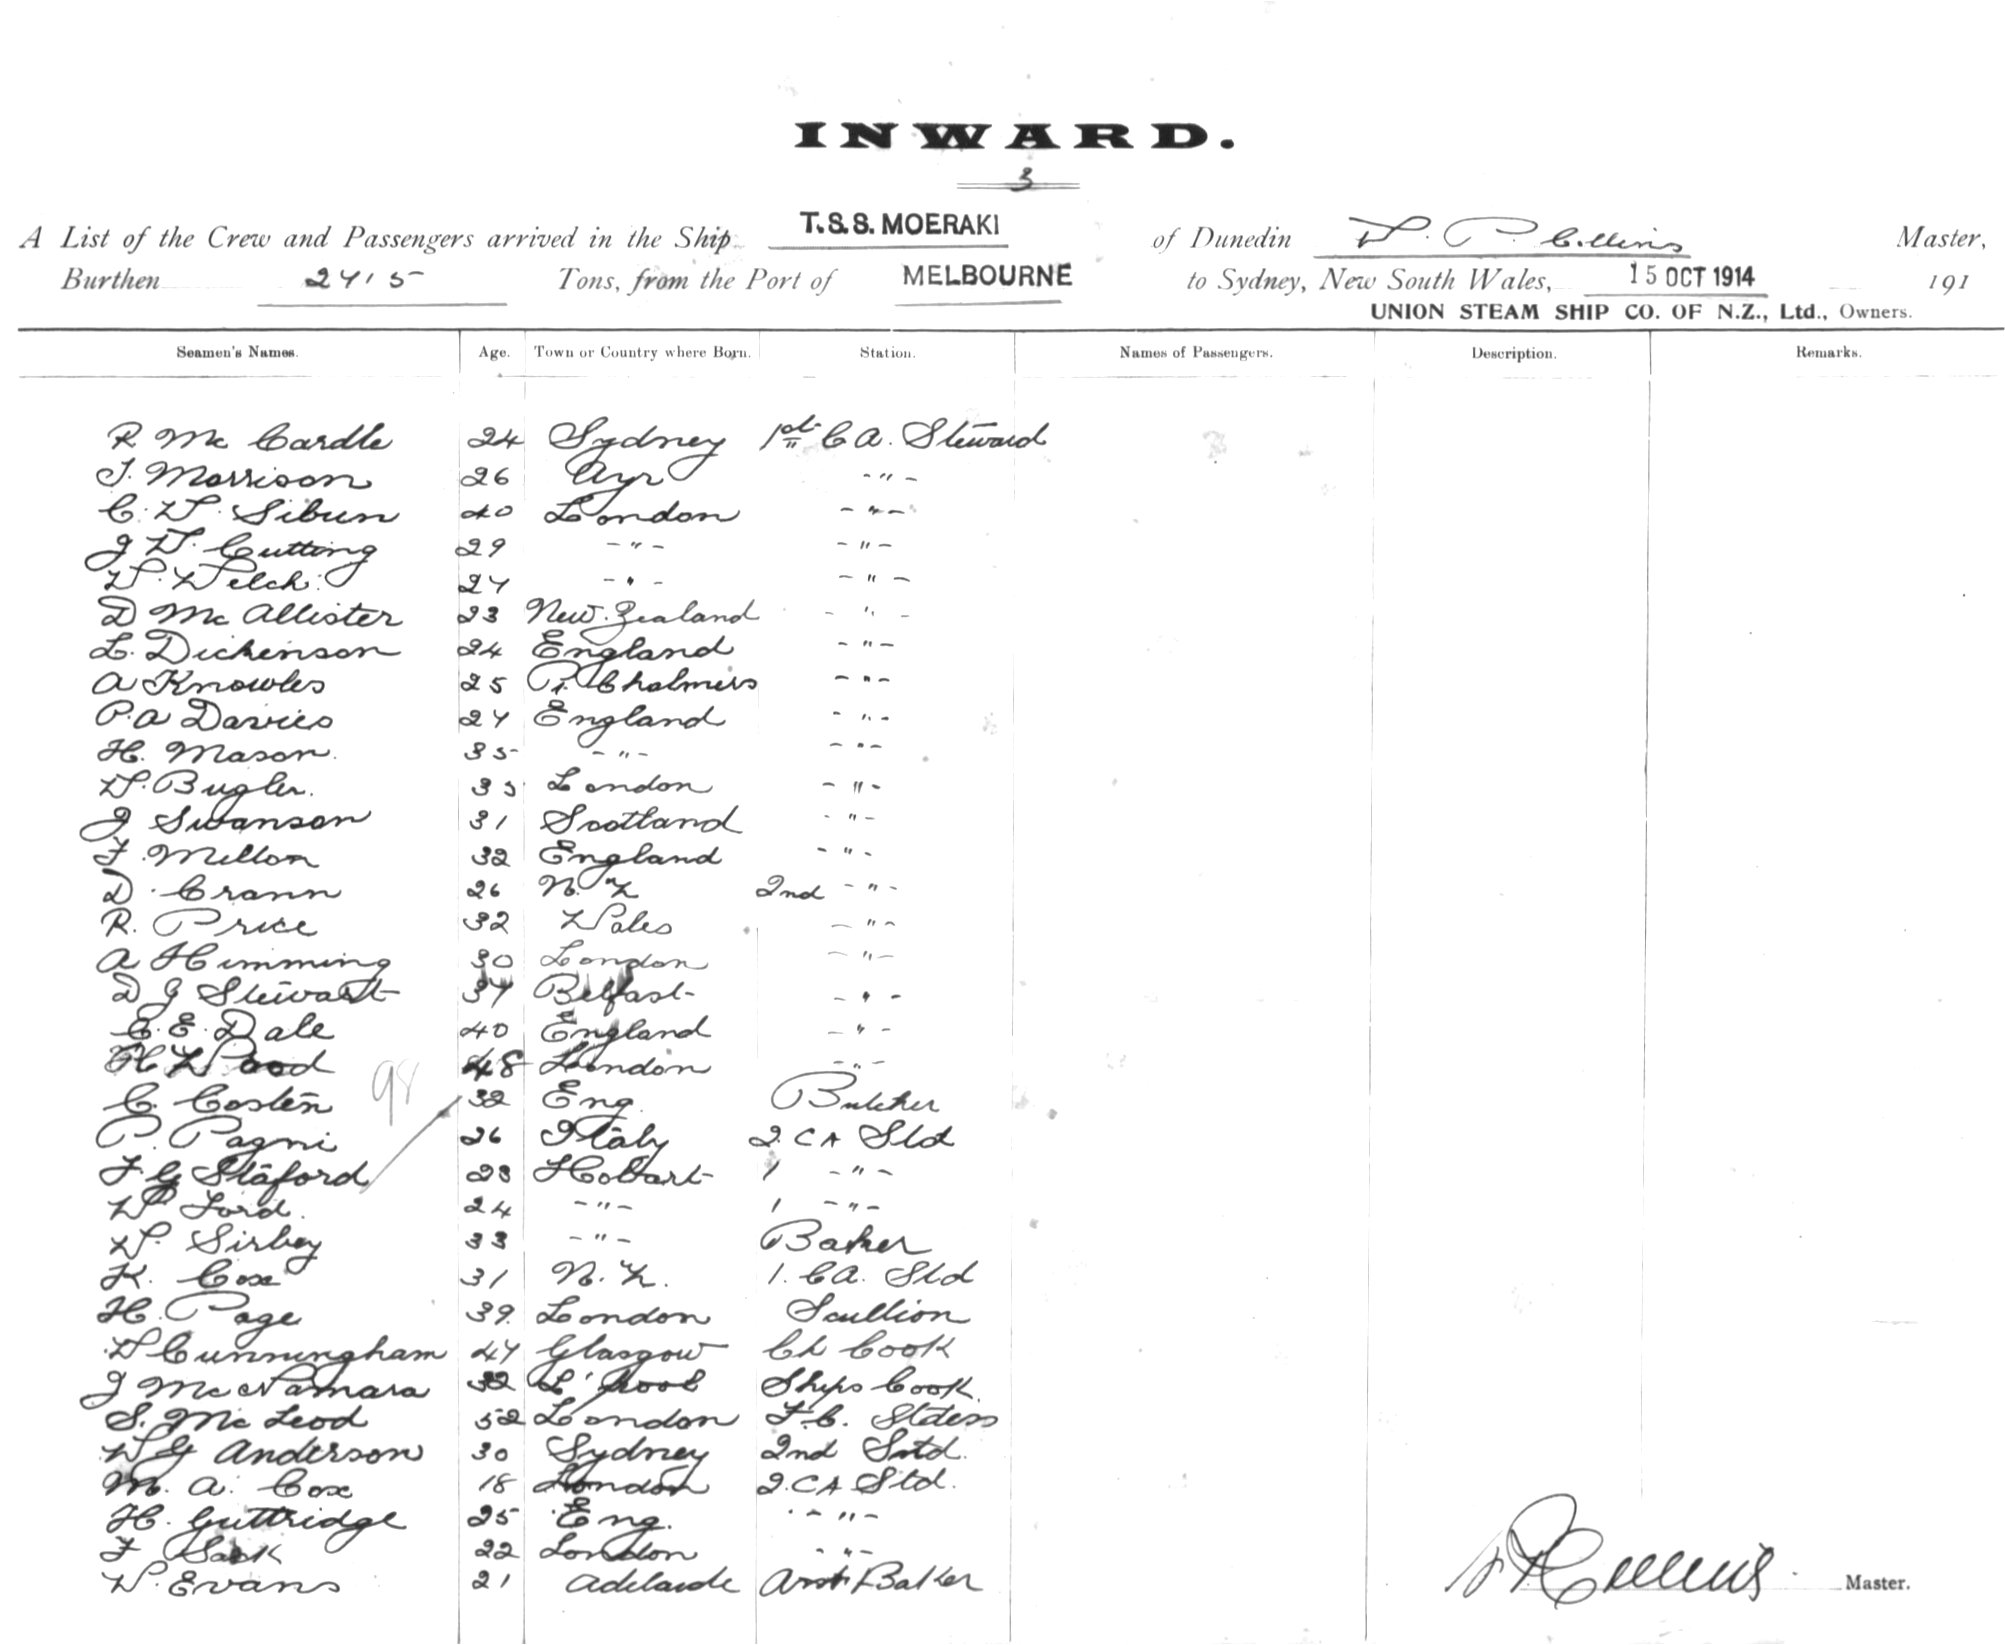 INWARD.
3
A List of the Crew and Passengers arrived in the Ship T.S.S. MOERAKI of Dunedin W. P. Collins Master,
Burthen 2715 Tons, from the Port of MELBOURNE to Sydney, New South Wales, 15 OCT 1914 191
UNION STEAM SHIP CO. OF N.Z., Ltd., Owners.
Seamen's Names. Age. Town or Country where Born. Station. Names of Passengers. Description. Remarks.
R. Mc Cardle 24 Sydney 1st C A. Steward
T. Morrison 26 Ayr - " -
C. W. Sibun 40 London - " -
J W. Cutting 29 - " - - " -
W. Welch. 27 - " - - " -
D Mc Allister 23 New Zealand - " -
L. Dickinson 24 England - " -
A Knowles 25 Pt. Chalmers - " -
P. A Davies 27 England - " -
H. Mason. 35 - " - - " -
W. Bugler. 35 London - " -
J Swanson 31 Scotland - " -
F. Mellon 32 England - " -
D. Crann 26 N. Z 2nd - " -
R. Price 32 Wales - " -
A Himming 30 London - " -
D J Stewart 37 Belfast - " -
C. E. Dale 40 England - " -
H Wood 48 London - " -
98
C. Costen 32 Eng. Butcher
P. Pagni 26 Italy 2. C A Std
F. G Staford 23 Hobart 1 - " -
W Ford. 24 - " - 1 - " -
W. Sirbey 33 - " - Baker
K. Cox 31 N. Z. 1. C A. Std
H. Page 39. London Scullion
W Cunningham 47 Glasgow Ch Cook
J McNamara 32 L'pool Ships Cook.
S. McLeod 52 London F. C. Stdess
W G Anderson 30 Sydney 2nd Std.
M. A. Cox 18 London 2. C A Std.
H. Guttridge 25 Eng. - " -
F 22 London - " -
W. Evans 21 Adelaide Asst Baker
W P Collins. Master.